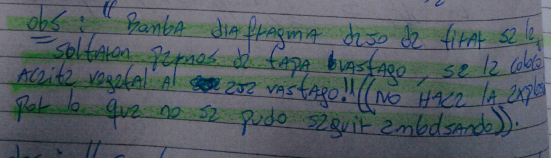 obs: " Bomba diafragma dejo de tirar se le
soltaron pernos de tapa vastago, se le coloco
Aceite vegetal al vastago!! ((No Hace la
por lo que no se pudo seguir embolsando)).